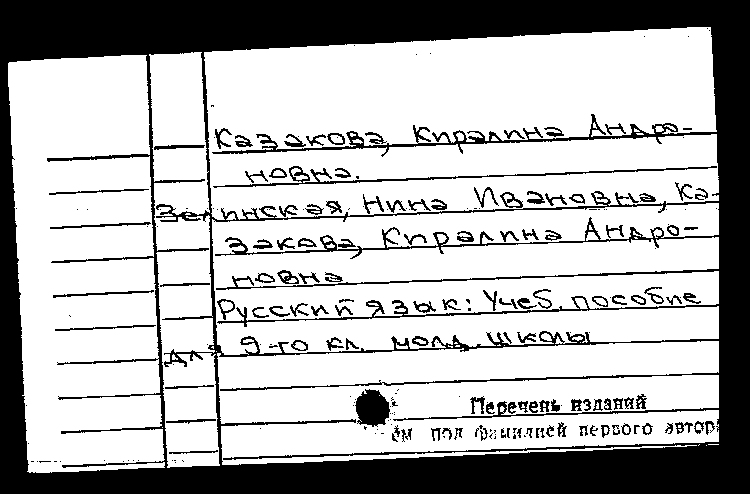 Казакова, Киралина Андро-
новна.
Зелинская, Нина Ивановна, Ка-
закова, Киралина Андро-
новна
Русский язык: Учеб. пособие
для 9-го кл. молд. школы
Перечень изданий
см под фамилией первого автора